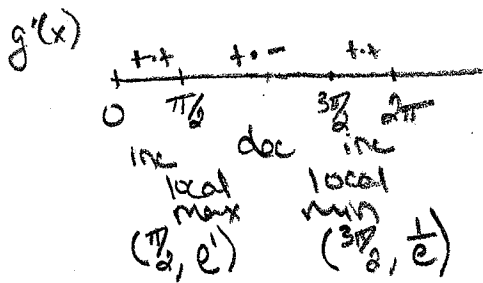 g'(x)
+·+ +·- +·+
0 π/2 3π/2 2π
inc dec inc
local local
max min
(π/2, e¹) (3π/2, 1/e)